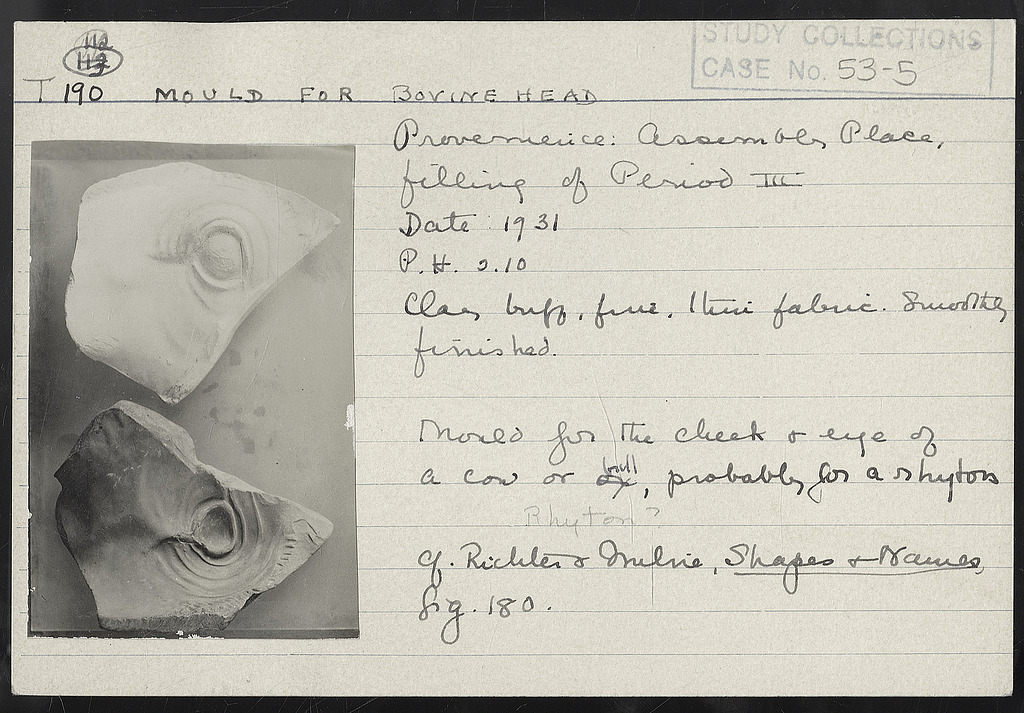 STUDY COLLECTIONS
CASE No. 53-5
112
113
T 190 MOULD FOR BOVINE HEAD
Provenience: Assembly Place,
filling of Period III
Date: 1931
P.H. 0.10
Clay buff, fine, thin fabric. Smoothly
finished.
Mould for the cheek & eye of
a cow or ox bull, probably for a rhyton
Rhyton?
cf. Richter & Milne, Shapes & Names,
fig. 180.